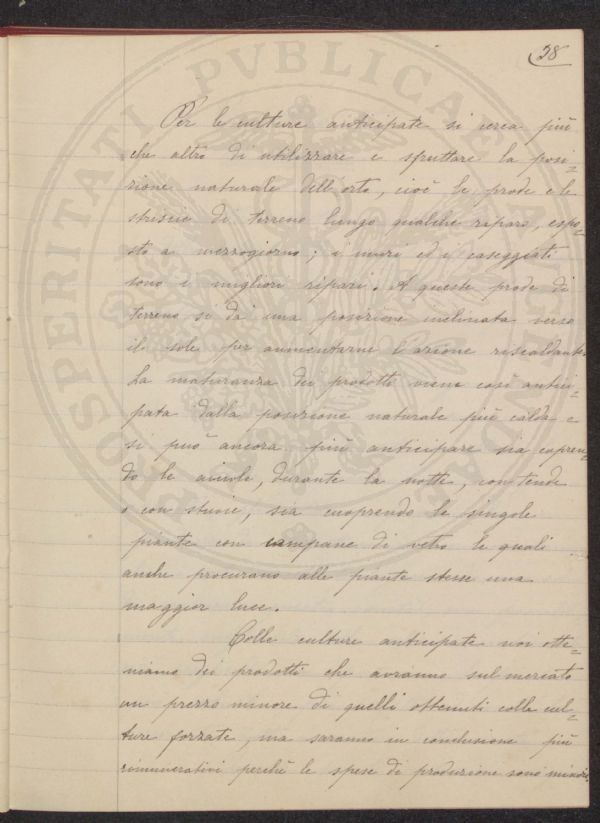 38
Per le culture anticipate si cerca più
che altro di utilizzare e sfruttare la posi-
zione naturale dell'orto, cioè le prode e le
striscie di terreno lungo qualche riparo, espo-
sto a mezzogiorno; i muri ed i caseggiati
sono i migliori ripari. A queste prode di
terreno si dà una posizione inclinata verso
il sole per aumentarne l'azione riscaldante.
La maturanza dei prodotti viene così antici-
pata dalla posizione naturale più calda e
si può ancora più anticipare sia copren-
do le aiuole, durante la notte, con tende
o con stuoie, sia cuoprendo le singole
piante con campane di vetro le quali
anche procurano alle piante stesse una
maggior luce.
Colle culture anticipate noi otte-
niamo dei prodotti che avranno sul mercato
un prezzo minore di quelli ottenuti colle cul-
ture forzate, ma saranno in conclusione più
rimunerativi perchè le spese di produzione sono minori
PROSPERITATI PVBLICAE AVGENDAE